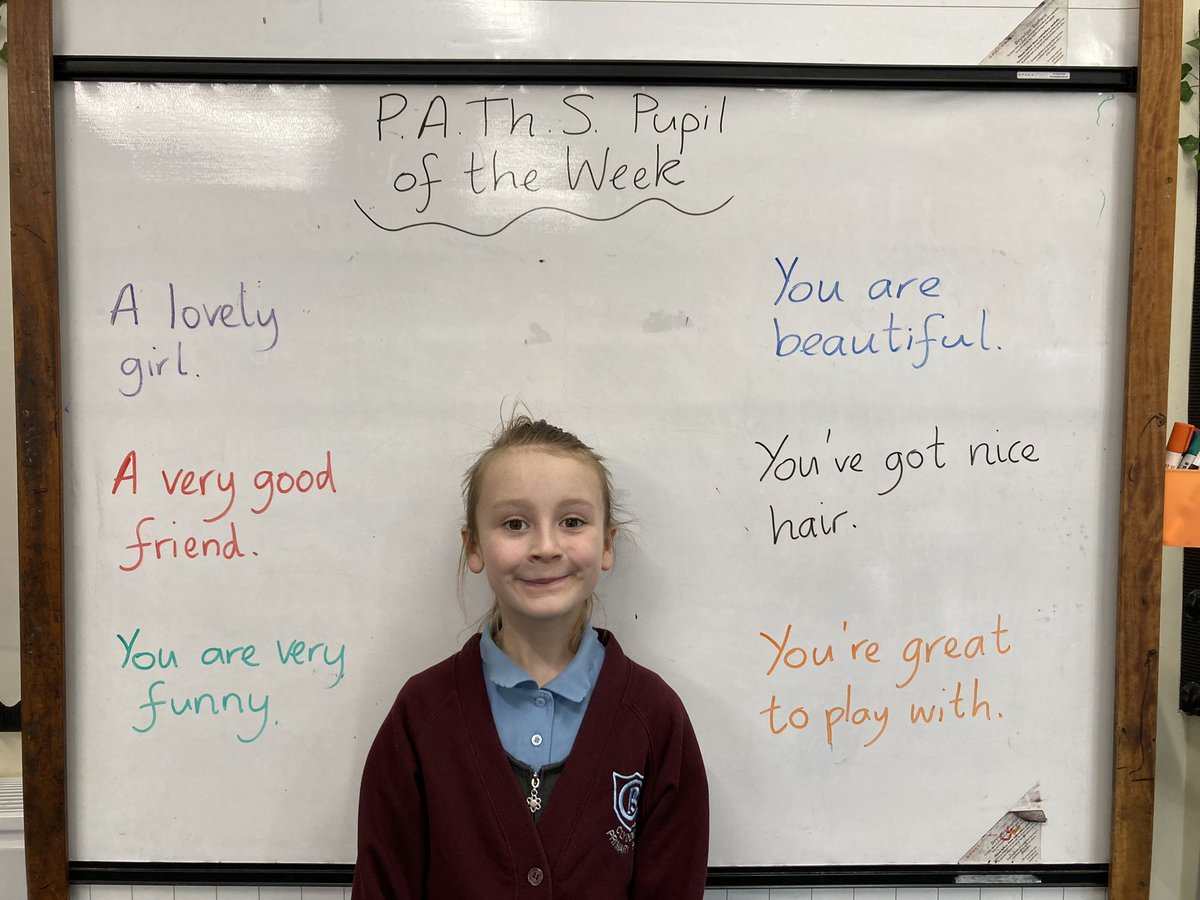 P.A.Th.S. Pupil
of the Week
A lovely
girl.
A very good
friend.
You are very
funny.
You are
beautiful.
You've got nice
hair.
You're great
to play with.